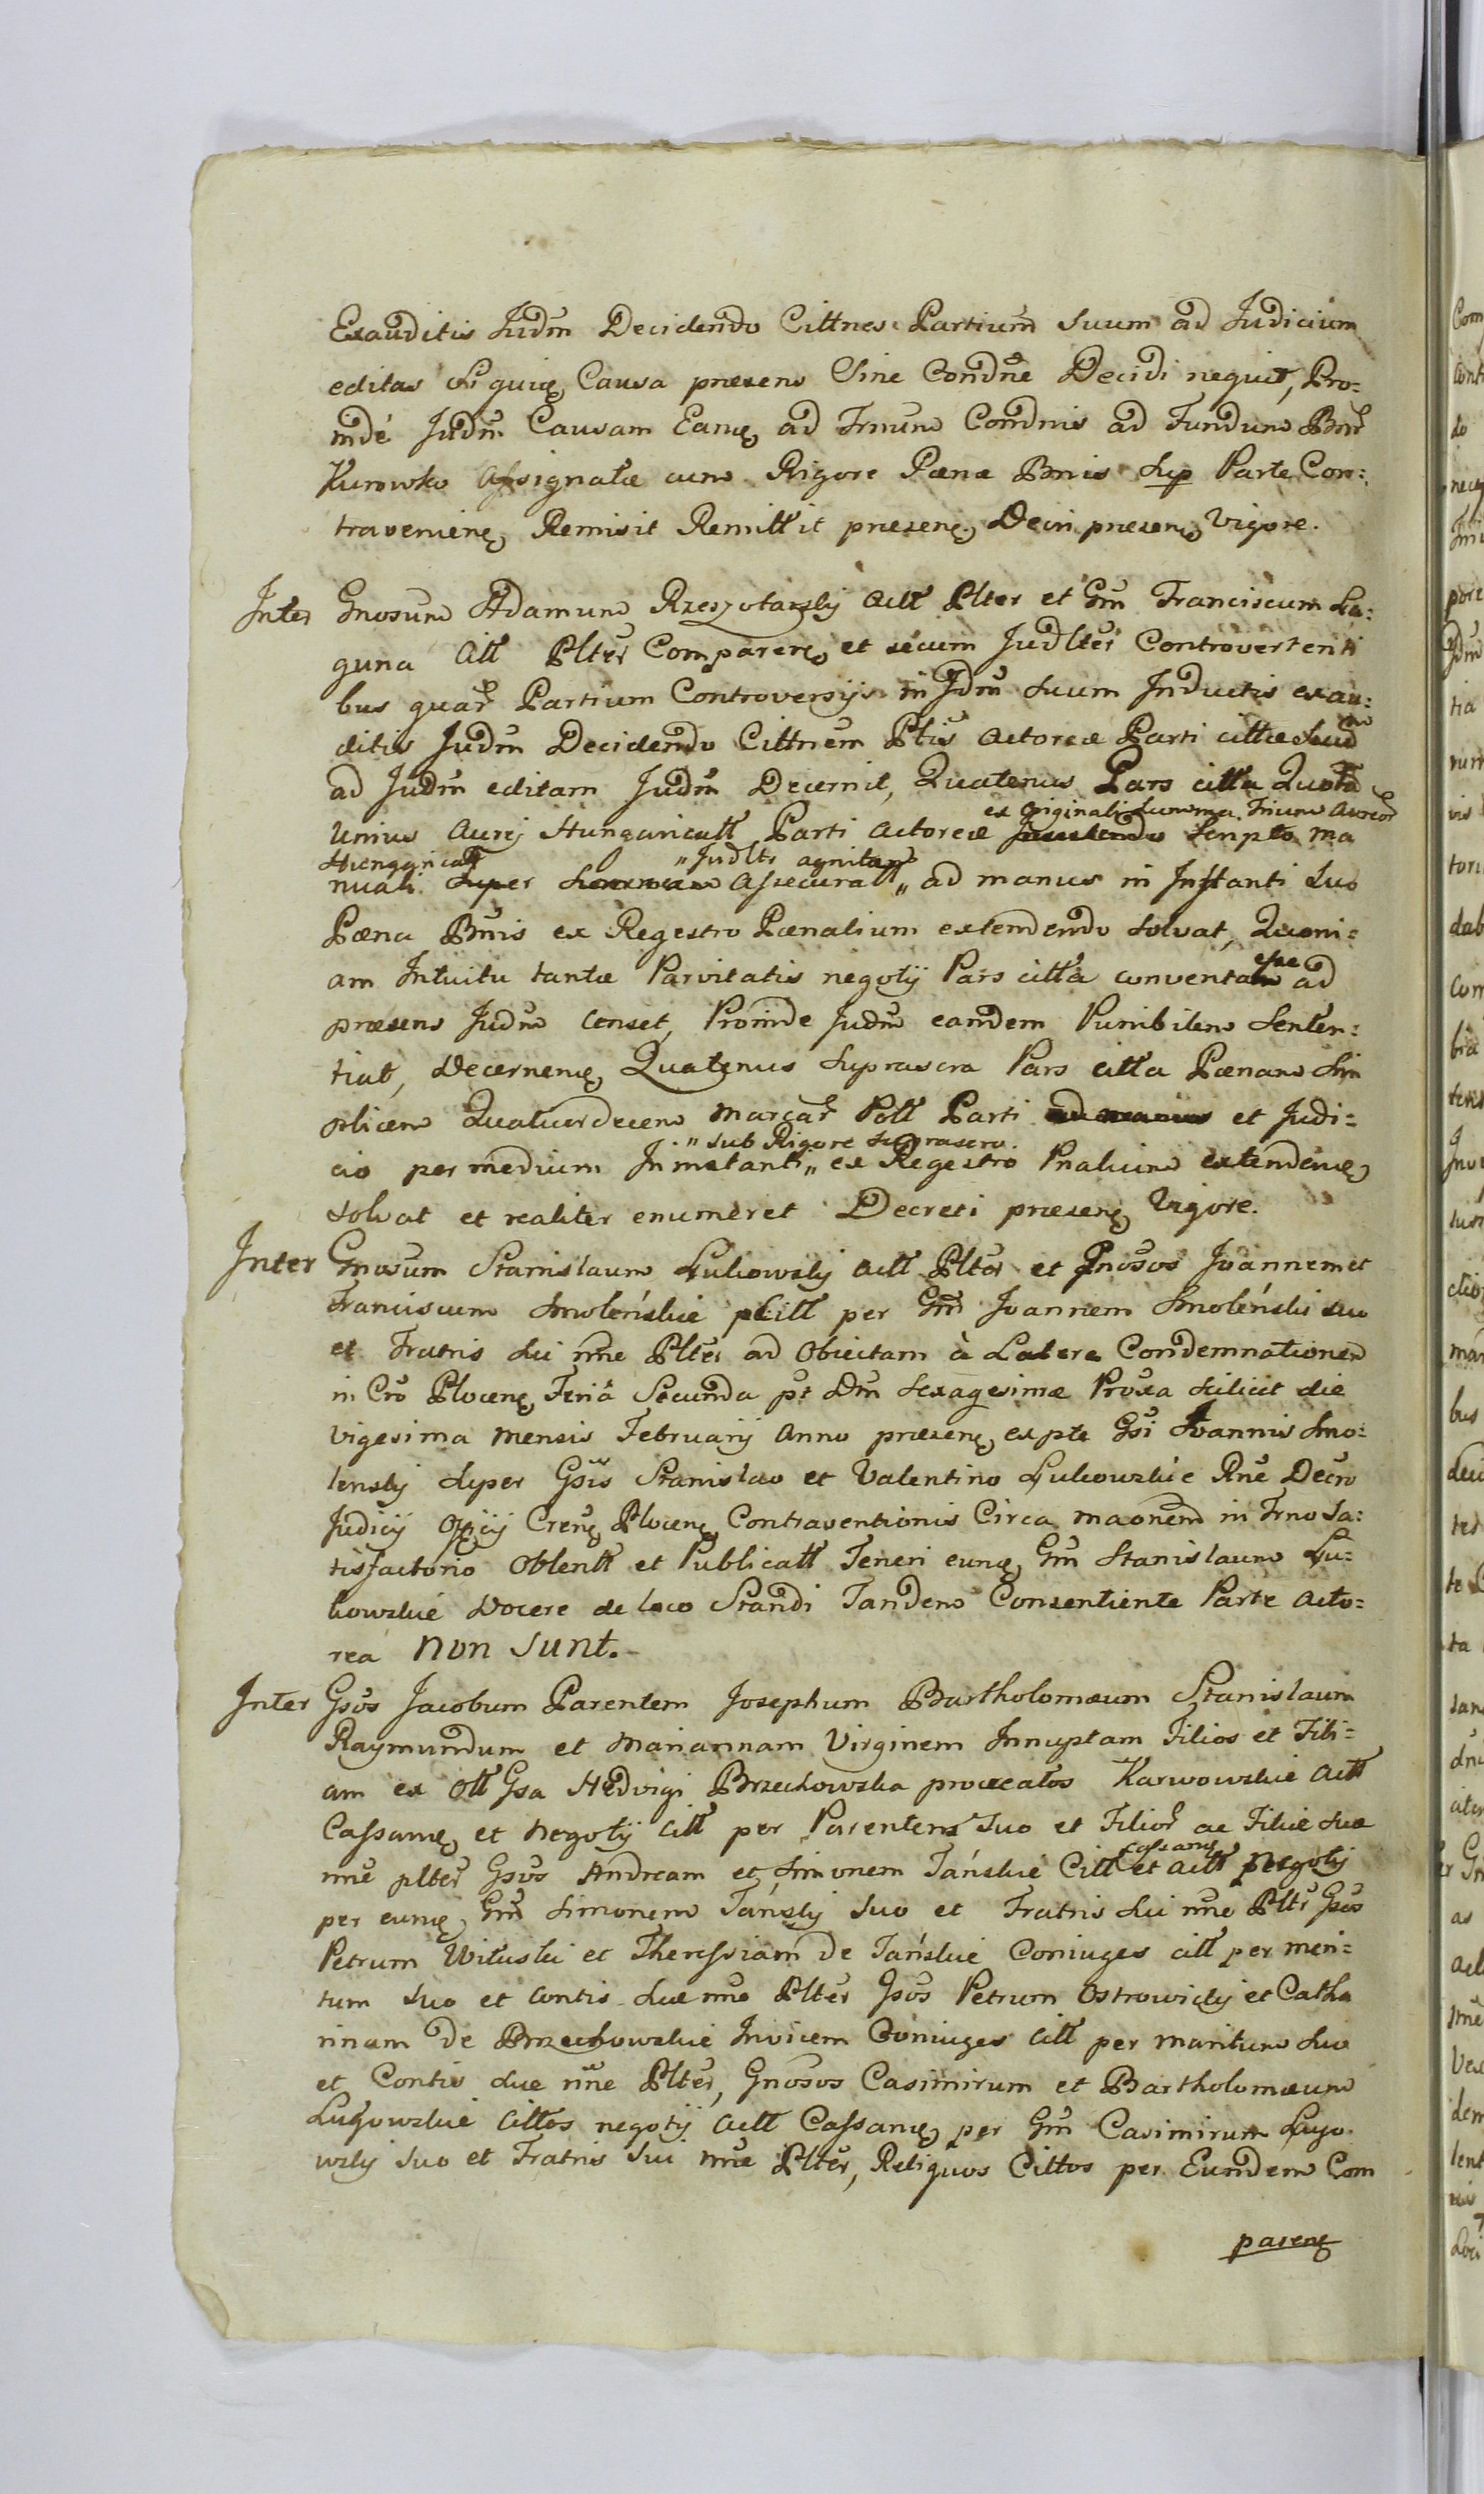 Exauditis Judm Decidendo Cittnes Partium Suum ad Judicium
editas Siquiɇ Causa præsens Sine Condne Decidi nequit, Pro=
indé Judm Causam Eamɇ ad Trnum Condnis ad Fundum Bnr
Kurowko assignatæ cum Rigore Pænæ Bnis Sup Parte Con=
travenienɇ Remisit Remittit præsenɇ Decri præsenɇ Vigore.
Inter Gnosum Adamum Rzeszotarsky Actt Plter et Gm Franciscum La=
guna Citt Plter Comparenɇ et secum Judlter Controvertenti
bus quar Partium Controversijs in Jdm Suum Inductis exau=
ditis Judm Decidendo Cittnem Ptis Actoreæ Parti cittæ Suum
ad Judm editam Judm Decernit, Quatenus Pars citta Quotam
ex Originali Summa Trium Aureor
Unius Aurej Hungaricatt Parti Actoreæ Scripto ma
Hungaricatt „Judltr agnitam
nuali Super Assecuratt„ ad manus in Instanti Sub
Pæna Bnis ex Regestro Pænalium extendendo Solvat, Quoni=
am Intuitu tantæ Parvitatis negotij Pars citta conventam esse ad
præsens Judm Censet, Proinde Judm eandem Punibilem Senten=
tiat, Decernenɇ Quatenus Suprascra Pars citta Pænam Sim
plicem Quatuordecem Marcar Poll Parti et Judi=
„sub Rigore Suprascro.
cio per medium In instanti„ ex Regestro Pnalium extendenɇ
Solvat et realiter enumeret Decreti præsenɇ Vigore.
Inter Gnosum Stanislaum Lukowsky Actt Plter et Gnosos Joannem et
Franciscum Smoleńskie pCitt per Gm Joannem Smoleński suo
et Fratris Sui nne Plter ad Obiectam à Latere Condemnationem
in Cro Plocenɇ Feriâ Secunda pt Dm Sexagesimæ Proxa Scilicet die
Vigesima Mensis Februarij Anno præsenɇ ex pte Gsi Joannis Smo=
lensky Super Gsis Stanislao et Valentino Lukowskie Rne Decro
Judicij Officij Crenɇ Plocenɇ Contraventionis Circa maonem in Trno Sa=
tisfactorio Obtentt et Publicatt Teneri eumɇ Gm Stanislaum Lu=
kowskie Docere de loco Standi Tandem Consentiente Parte Acto=
rea Non Sunt.
Inter Gsos Jacobum Parentem Josephum Bartholomæum Stanislaum
Raymundum et Mariannam Virginem Innuptam Filios et Fili=
am ex Ott Gsa Hedvigi Brzechowska procreatos Karwowskie Actt
Cassamɇ et Negotij Citt per Parentem Suo et Filior ac Filiæ Suæ
nne plter Gsos Andream et Simonem Tańskie Citt Cassamɇ et Actt Negotij
per eumɇ Gm Simonem Tańsky Suo et Fratris Sui nne Plter Gsos
Petrum Wituski et Theressiam de Tańskie Coniuges citt per mari=
tum Suo et Contis Suæ nne Plter Gsos Petrum Ostrowicky et Catha
rinam de Brzechowskie Invicem Coniuges Citt per Maritum Suo
et Contis Suæ nne Plter, Gnosos Casimirum et Bartholomæum
Lugowskie Cittos negotij Actt Cassamɇ per Gm Casimirum Lugo
wsky Suo et Fratris Sui nne Plter, Reliquos Cittos per Eumdem Com
parenɇ